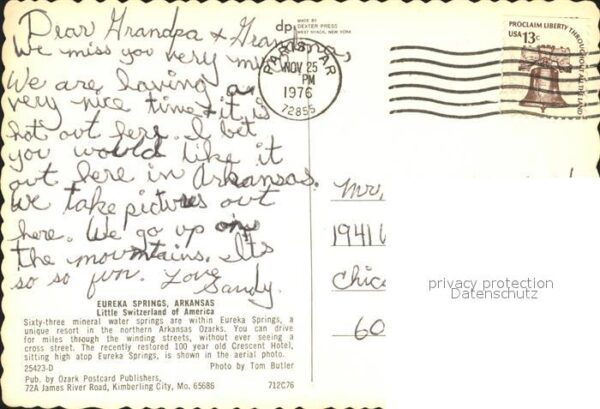 Dear Grandpa + Grandma,
We miss you very mu
We are having a
very nice time + it is
hot out here. I bet
you would like it
out here in Arkansas.
We take pictures out
here. We go up on
the mountains. Its
so so fun. Love
Sandy.
EUREKA SPRINGS, ARKANSAS
Little Switzerland of America
Sixty-three mineral water springs are within Eureka Springs, a
unique resort in the northern Arkansas Ozarks. You can drive
for miles through the winding streets, without ever seeing a
cross street. The recently restored 100 year old Crescent Hotel,
sitting high atop Eureka Springs, is shown in the aerial photo.
25423-D Photo by Tom Butler
Pub. by Ozark Postcard Publishers,
72A James River Road, Kimberling City, Mo. 65686 712C76
dpi MADE BY
DEXTER PRESS
WEST NYACK, NEW YORK
PARIS AR
NOV 25
PM
1976
72855
PROCLAIM LIBERTY THROUGHOUT ALL THE LAND
USA 13c
Mr,
1941 W
Chica
60
privacy protection
Datenschutz